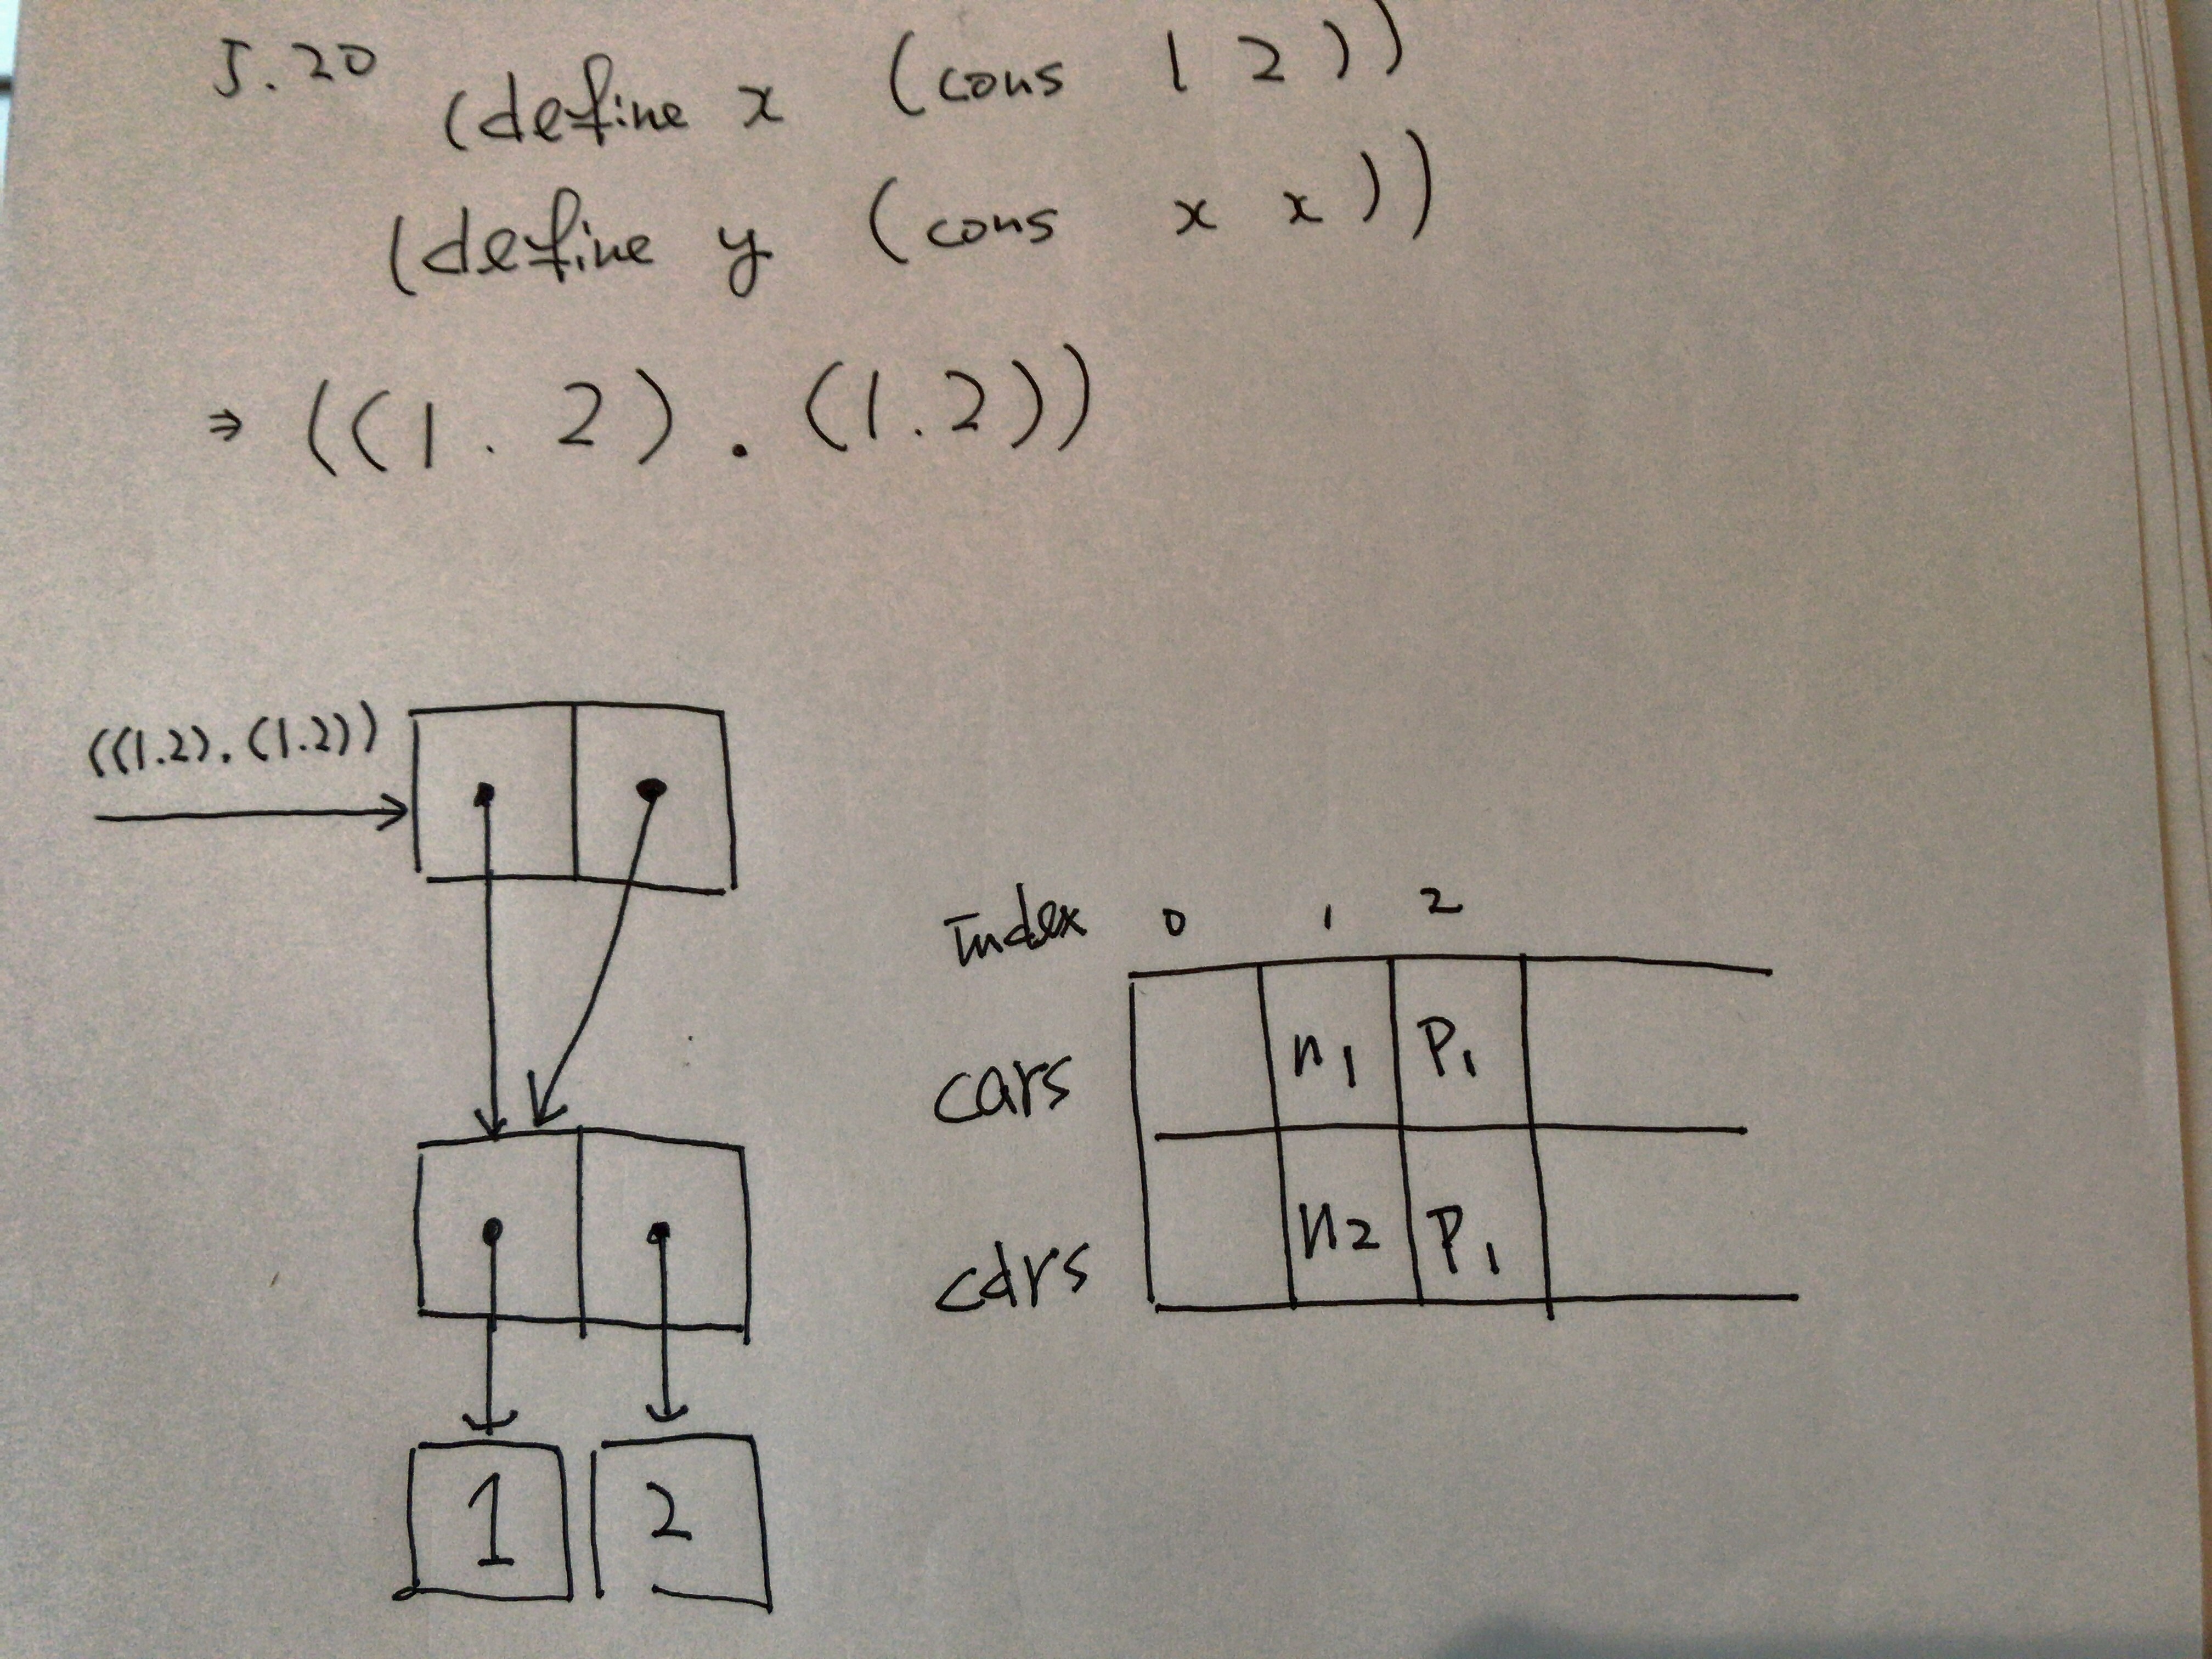 5.20
(define x (cons 1 2))
(define y (cons x x))
⇒ ((1 . 2) . (1.2))
((1.2).(1.2))
1 2
Index 0 1 2
cars n1 P1
cdrs n2 P1